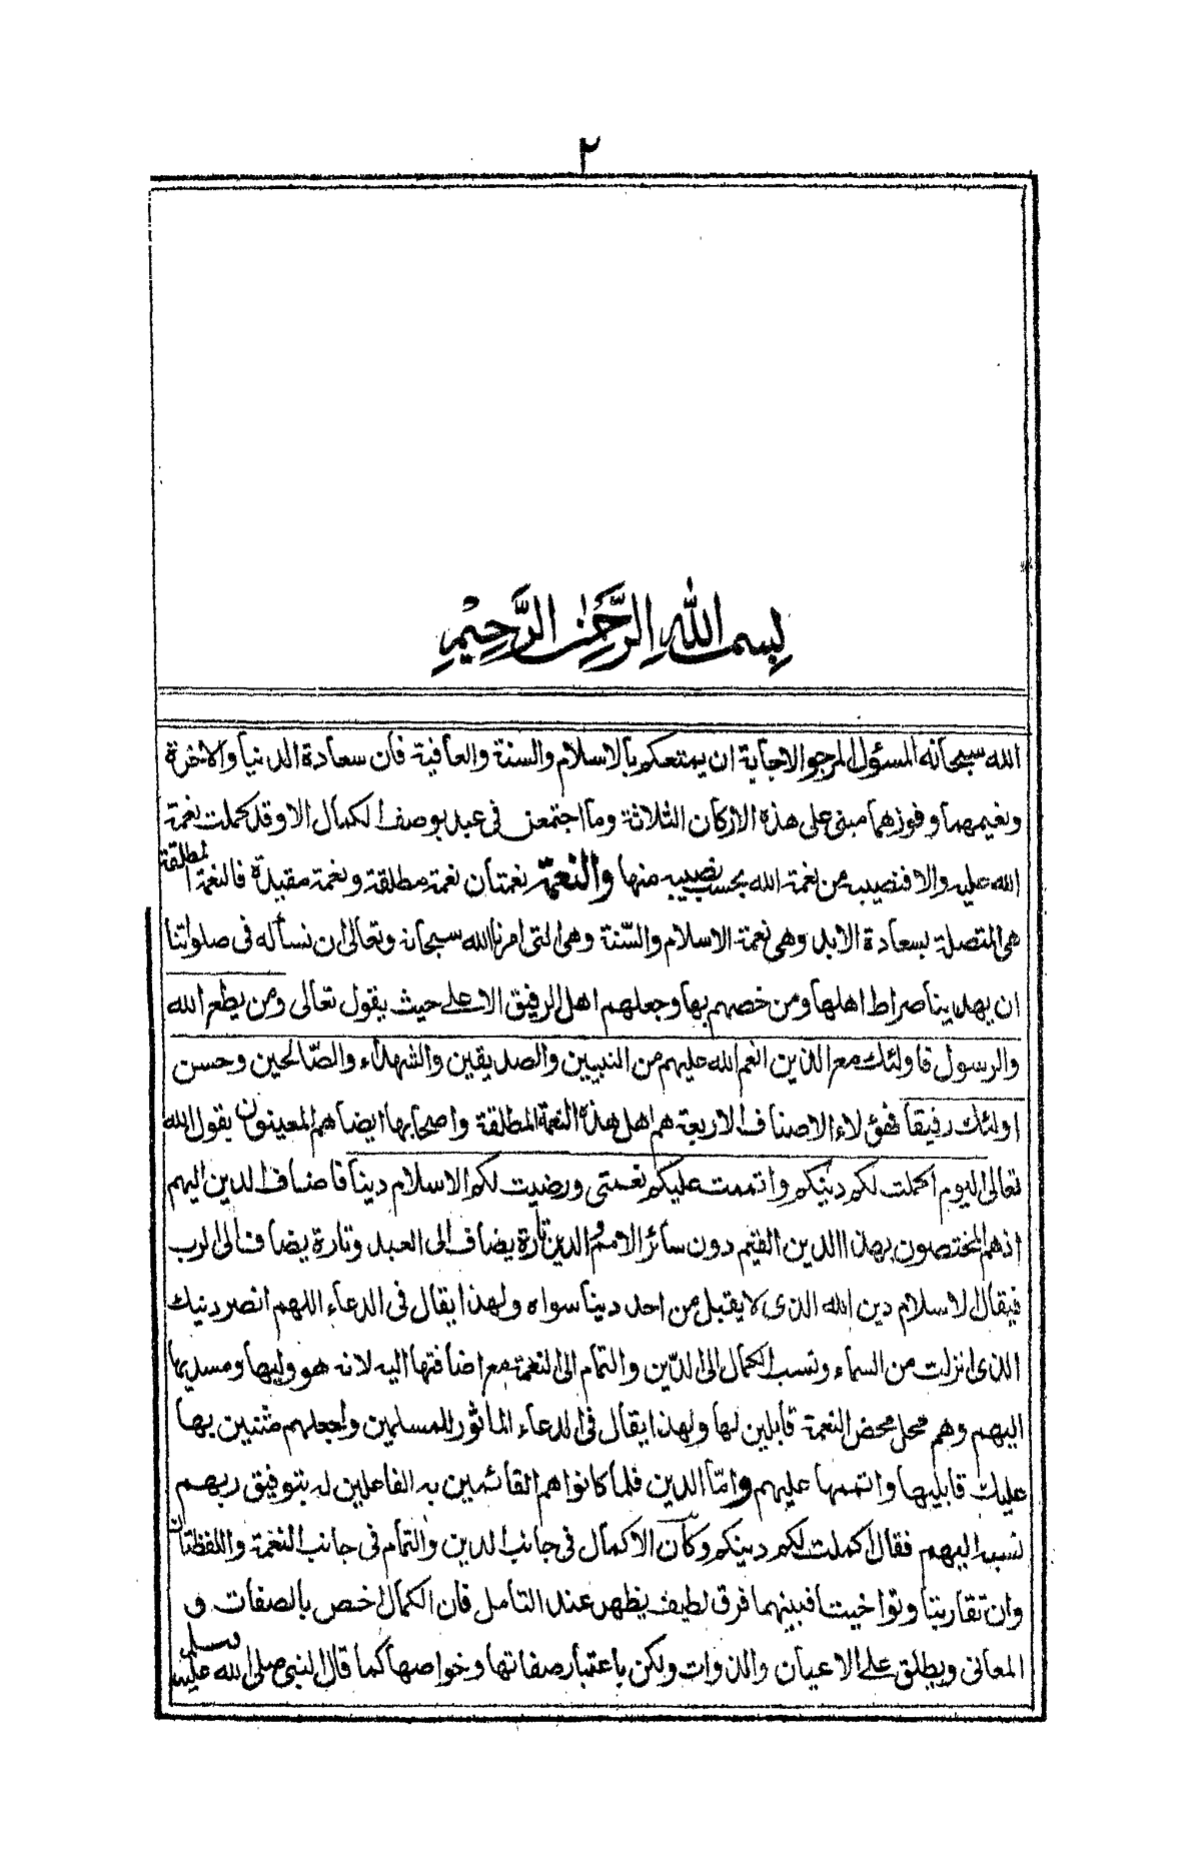 ٢
بِسمِ اللهِ الرَّحمٰنِ الرَّحِيْمِ
الله سبحانه المسؤل المرجو الاجابة ان يمتعكم بالاسلام والسنة والعافية فان سعادة الدنيا والاخرة
ونعيمهما وفوزهما مبنى على هذه الاركان الثلاثة وما اجتمعن فى عبد بوصف الكمال الا وقد كملت نعمة
الله عليه والا فنصيبه من نعمة الله بحسب نصيبه منها والنعمة نعمتان نعمة مطلقة ونعمة مقيدة فالنعمة المطلقة
هى المتصلة بسعادة الابد وهى نعمة الاسلام والسّنة وهى التى امرنا الله سبحانه وتعالى ان نسأله فى صلواتنا
ان يهدينا صراط اهلها ومن خصهم بها وجعلهم اهل الرفيق الاعلى حيث يقول تعالى ومن يطع الله
والرسول فاولئك مع الذين انعم الله عليهم من النبيين والصديقين والشهداء والصّالحين وحسن
اولئك رفيقا فهؤلاء الاصناف الاربعة هم اهل هذه النعمة المطلقة واصحابها ايضا هم المعينون بقول الله
تعالى اليوم اكملت لكم دينكم واتممت عليكم نعمتى ورضيت لكم الاسلام دينا فاضاف الدين اليهم
اذ هم المختصون بهذا الدين القيم دون سائر الامم والدين تارة يضاف الى العبد وتارة يضاف الى الرب
فيقال الاسلام دين الله الذى لا يقبل من احد دينا سواه ولهذا يقال فى الدعاء اللهم انصر دينك
الذى انزلت من السماء ونسب الكمال الى الدّين والتمام الى النعمة مع اضافتها اليه لانه هو وليها ومسديها
اليهم وهم محل محض النعمة قابلين لها ولهذا يقال فى الدعاء المأثور للمسلمين واجعلهم مثنين بها
عليك قابليها واتممها عليهم وامّا الدين فلما كانوا هم القائمين به الفاعلين له بتوفيق ربهم
نسبه اليهم فقال اكملت لكم دينكم وكأن الاكمال فى جانب الدين والتمام فى جانب النعمة واللفظتان
وان تقاربتا وتواخيتا فبينهما فرق لطيف يظهر عند التامل فان الكمال اخص بالصفات و
المعانى ويطلق على الاعيان والذوات ولكن باعتبار صفاتها وخواصها كما قال النبى صلى الله عليه وسلم